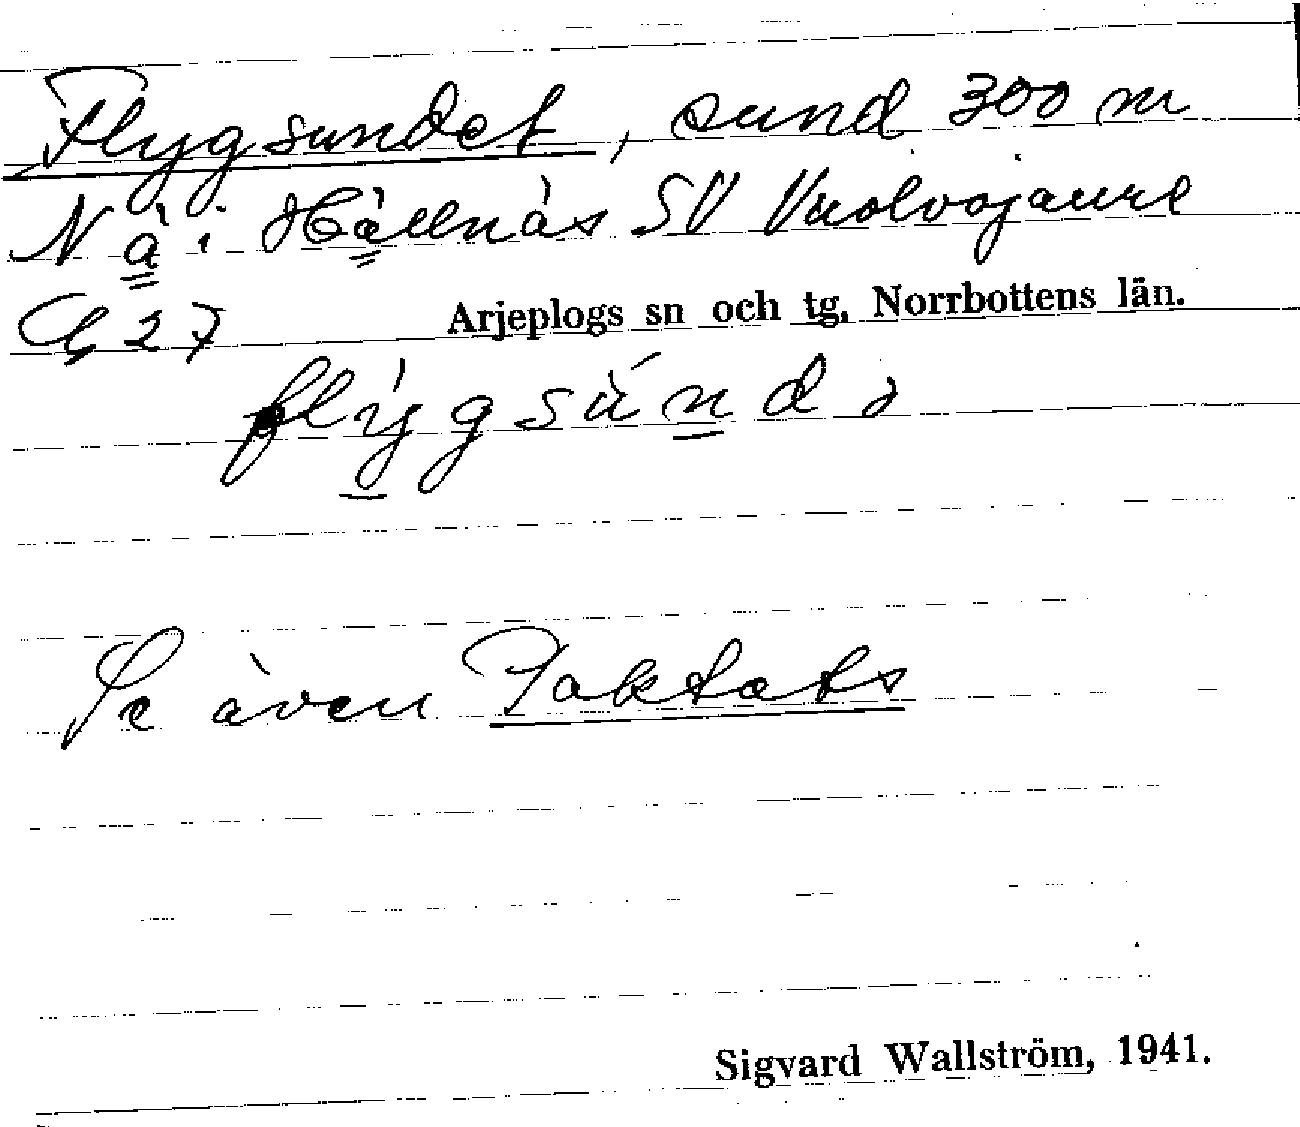 Flygsundet, sund 300 m
N ä i Hällnäs SV Vuolvojaure
G 27
Arjeplogs sn och tg, Norrbottens län.
flýgsùnd
Se även Paktats
Sigvard Wallström, 1941.